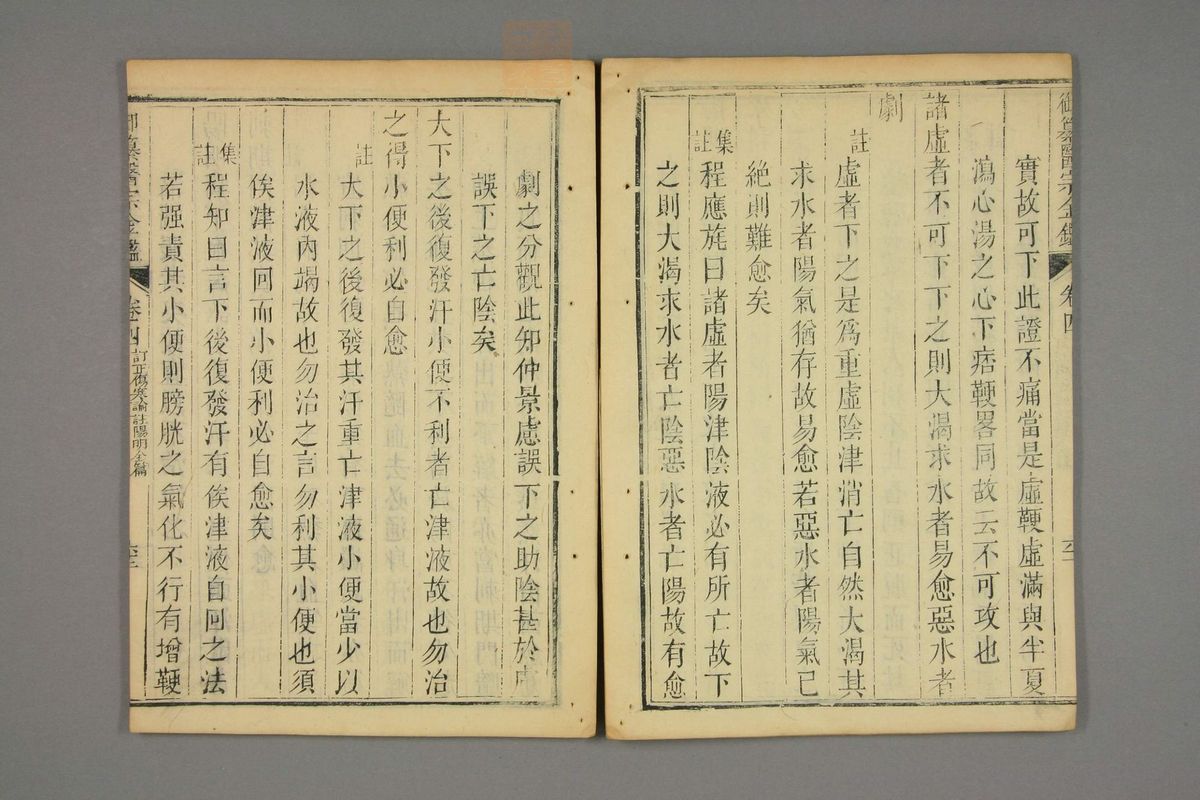 御纂醫宗金鑑 卷四
實故可下此證不痛當是虛鞕虛滿與半夏
瀉心湯之心下痞鞕畧同故云不可攻也
諸虛者不可下下之則大渴求水者易愈惡水者
劇
註虛者下之是爲重虛陰津消亡自然大渴其
求水者陽氣猶存故易愈若惡水者陽氣已
絶則難愈矣
集註程應旄曰諸虛者陽津陰液必有所亡故下
之則大渴求水者亡陰惡水者亡陽故有愈
劇之分觀此知仲景慮誤下之助陰甚於
誤下之亡陰矣
大下之後復發汗小便不利者亡津液故也勿治
之得小便利必自愈
註大下之後復發其汗重亡津液小便當少以
水液內竭故也勿治之言勿利其小便也須
俟津液回而小便利必自愈矣
集註程知曰言下後復發汗有俟津液自回之法
若强責其小便則膀胱之氣化不行有增鞕
御纂醫宗金鑑 卷四 訂正傷寒論註陽明全篇